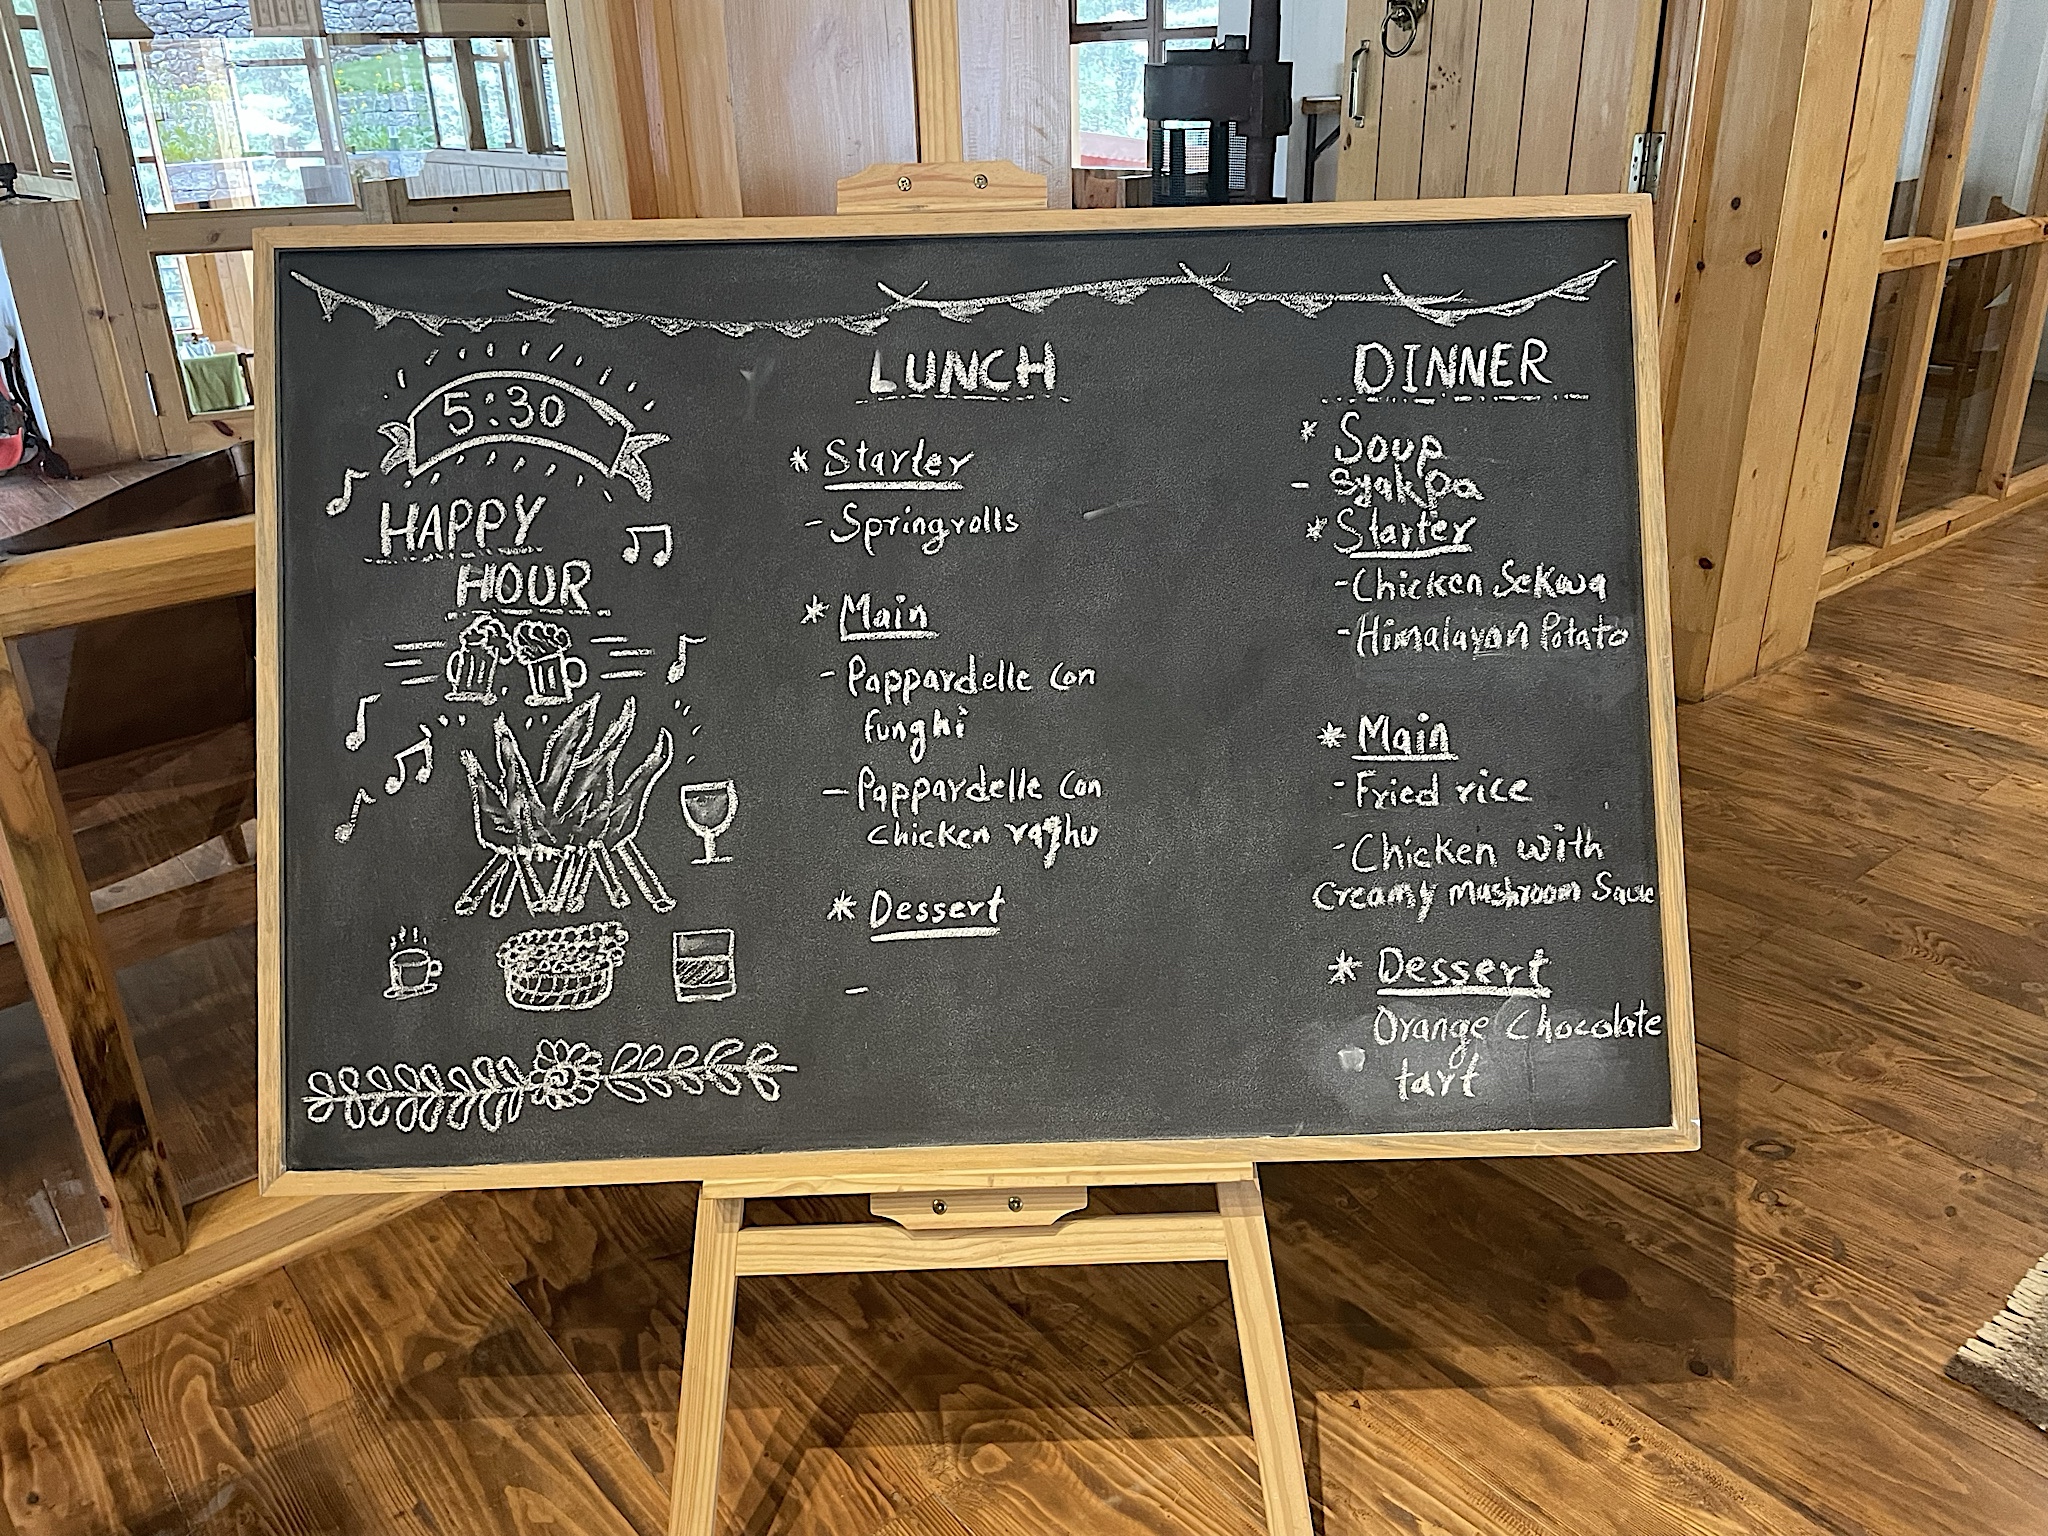 5:30
HAPPY
HOUR
LUNCH
* Starter
- Springrolls
* Main
- Pappardelle Con
funghi
- Pappardelle Con
Chicken raghu
* Dessert
-
DINNER
* Soup
- Syakpa
* Starter
- Chicken Sekwa
- Himalayan Potato
* Main
- Fried rice
- Chicken with
Creamy Mushroom Sauce
* Dessert
Orange Chocolate
tart